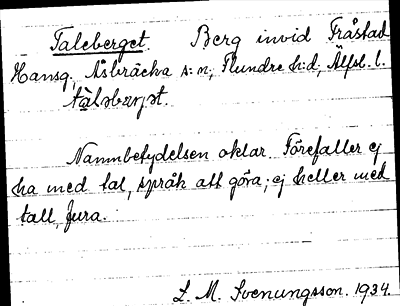 Taleberget. Berg invid Fråstad
Hansg., Åsbräcka s:n, Flundre h:d, Älfsb. l.
Namnbetydelsen oklar. Förefaller ej
ha med tal, språk att göra; ej heller med
tall, fura.
L. M. Svenungsson. 1934.